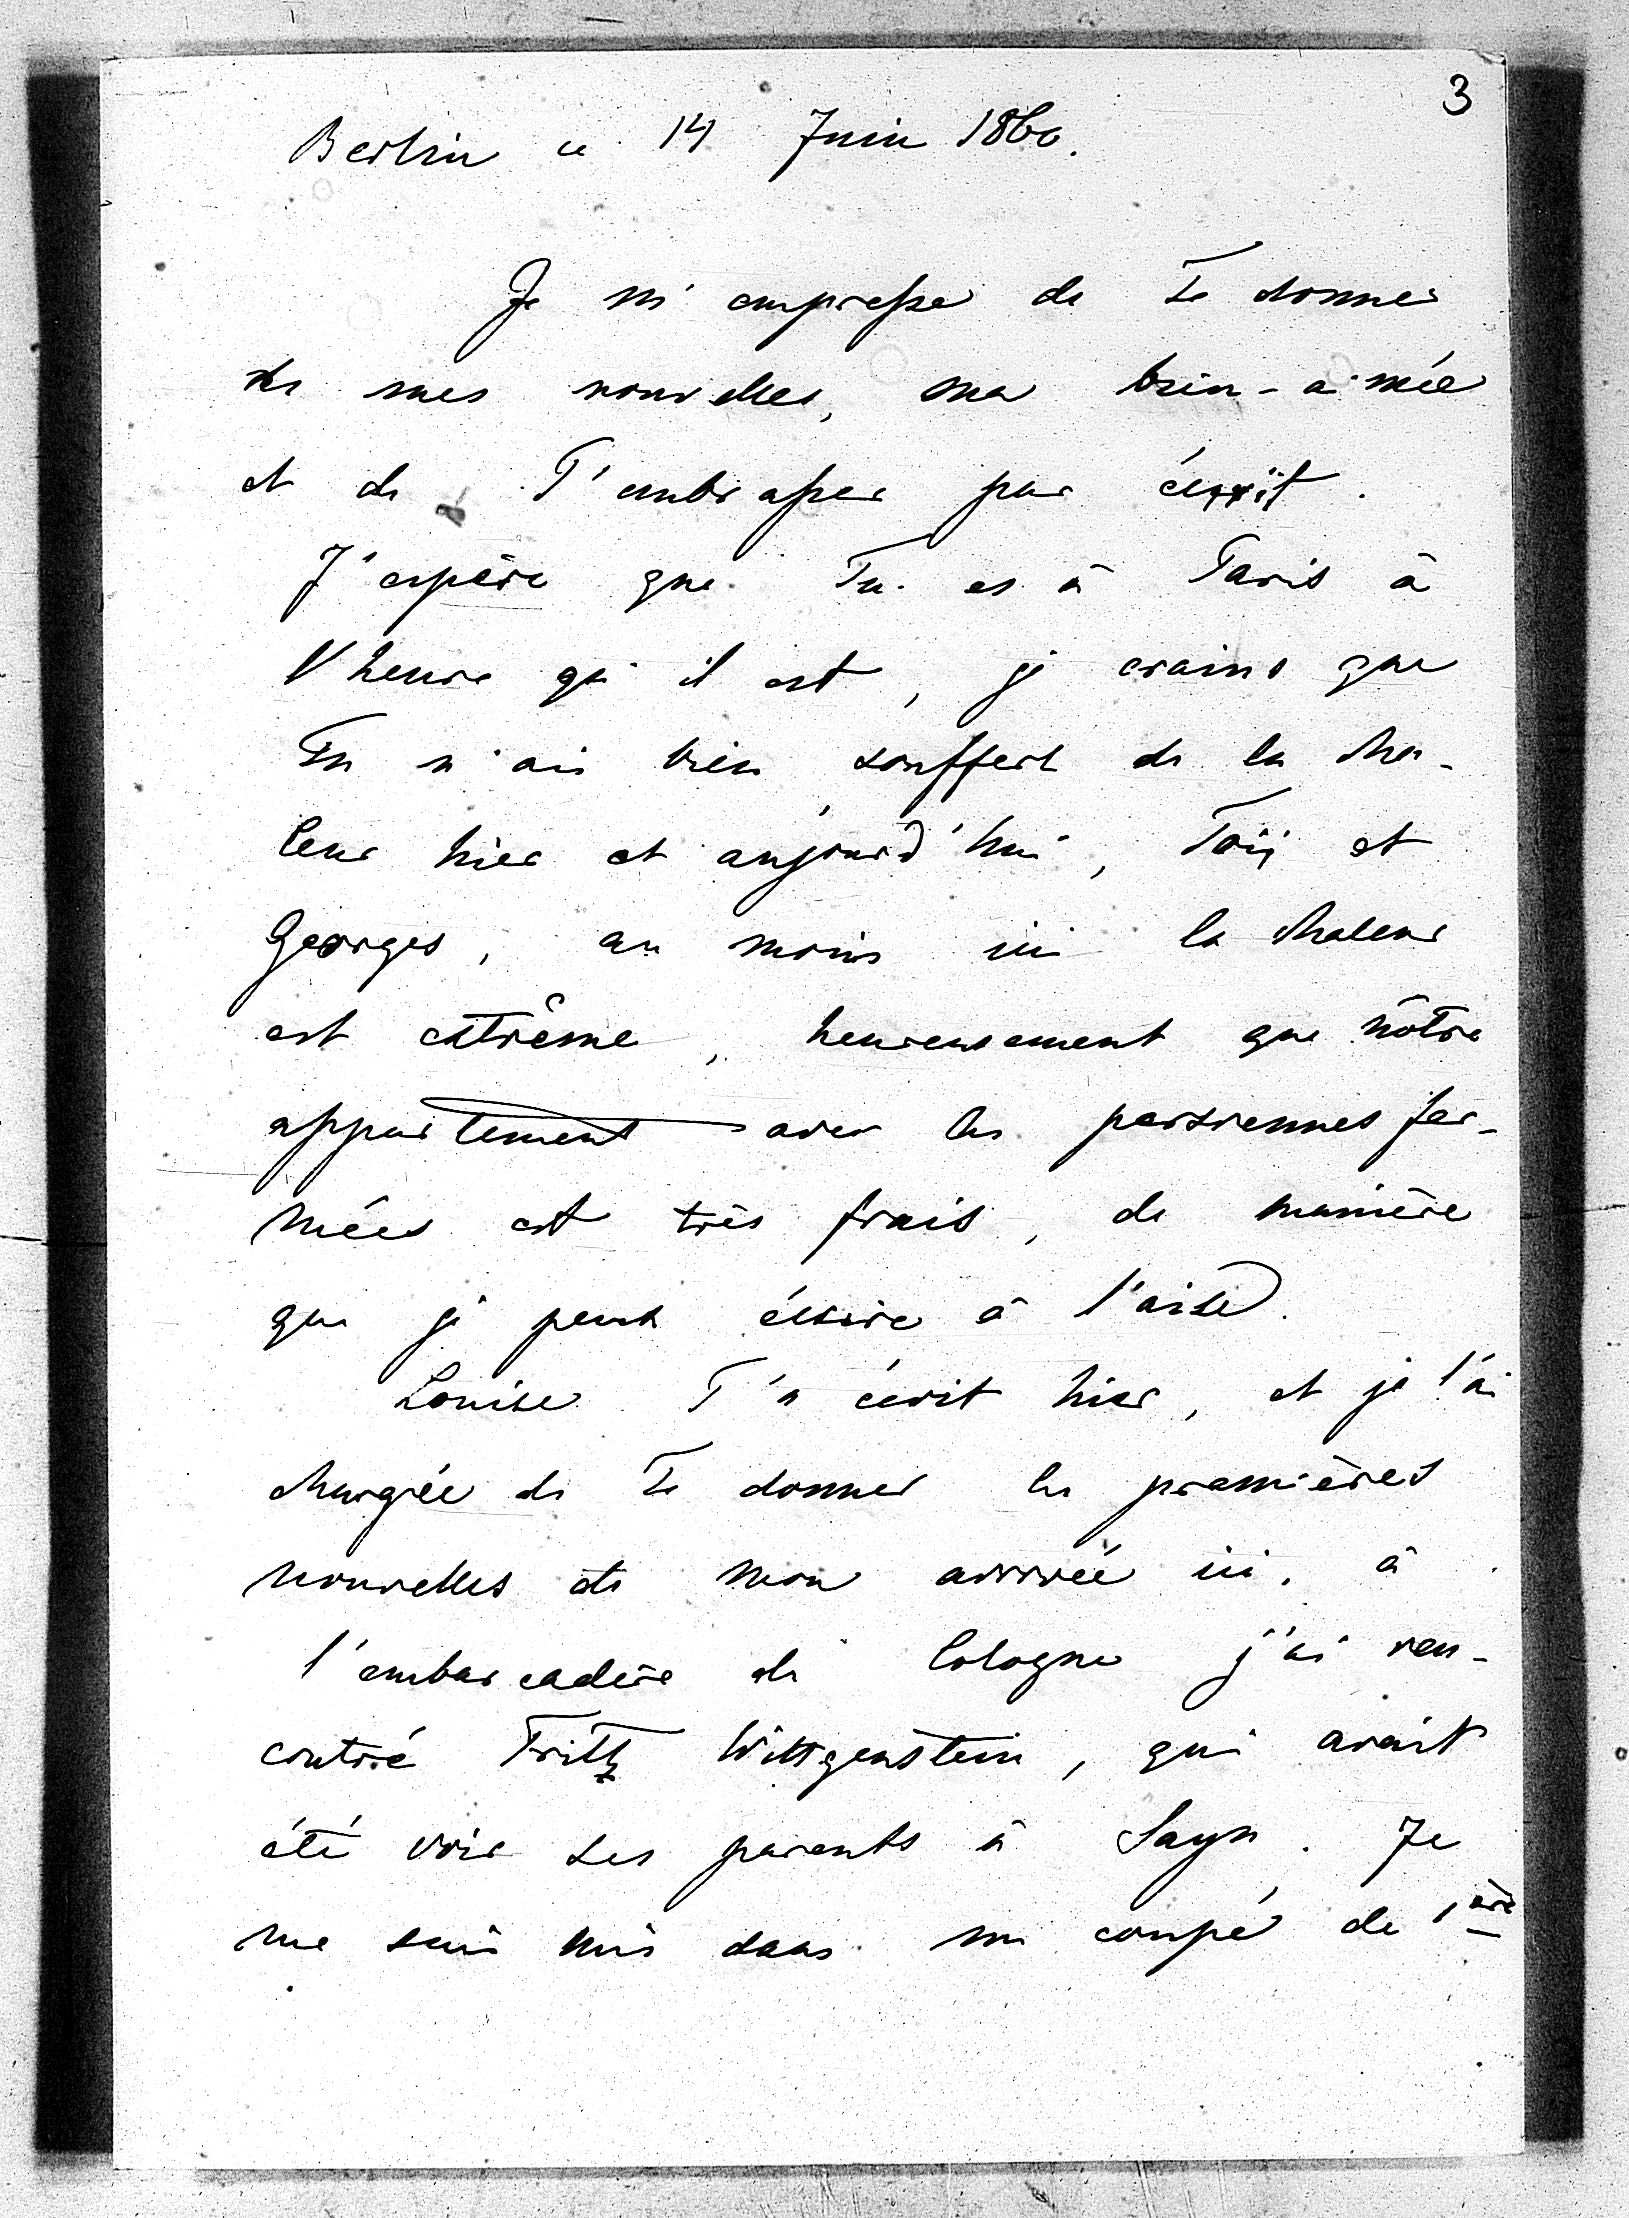 3
Berlin ce 14 Juin 1860.
Je m'empresse de Te donner
de mes nouvelles, ma bien-aimée
et de T'embrasser par écrit.
J'espère que Tu es à Paris à
l'heure qu'il est, je crains que
Tu n'ais bien souffert de la cha-
leur hier et aujourd'hui, Toi et
Georges, au moins ici la chaleur
est extrême, heureusement que nôtre
appartement avec les persiennes fer-
mées est très frais, de manière
que je peux écrire à l'aise.
Louise T'a écrit hier, et je l'ai
chargée de Te donner les premières
nouvelles de mon arrivée ici. à
l'embarcadère de Cologne j'ai ren-
contré Fritz Wittgenstein, qui avait
été voir ses parents à Sayn. Je
me suis mis dans un coupé de 1ère